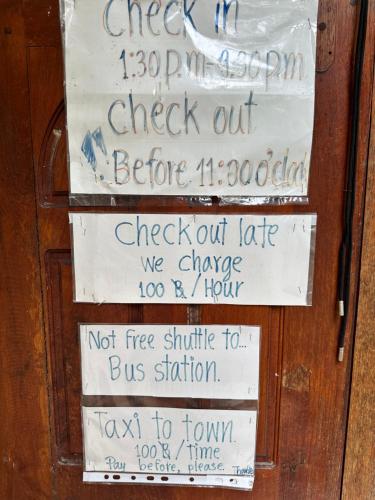 Check in
1:30 p.m-9.30pm
Check out
Before 11:30 o'clo
Check out late
we charge
100 ฿/Hour
Not Free shuttle to...
Bus station.
Taxi to town.
100฿/time
Pay before, please. Thanks